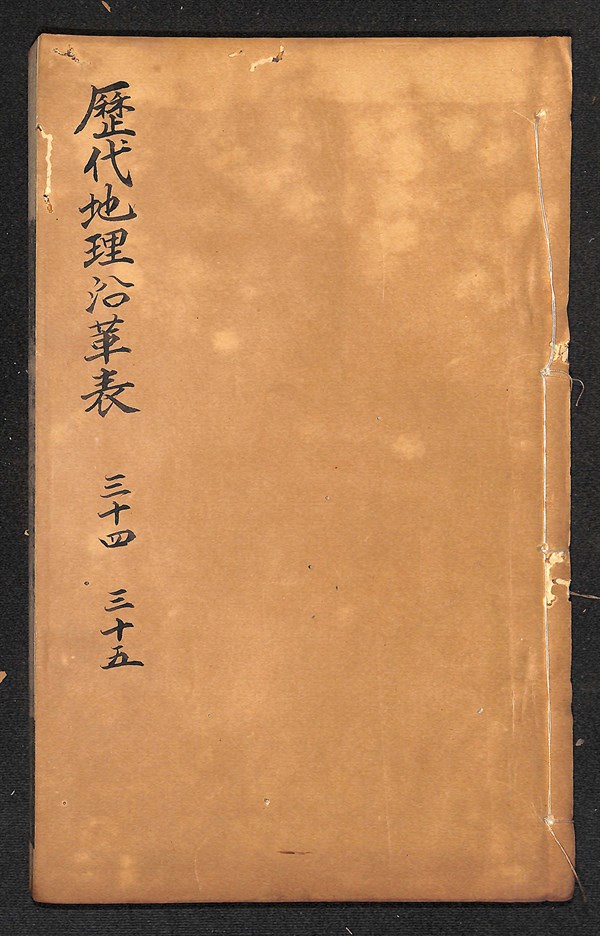 歷代地理沿革表
三十四 三十五